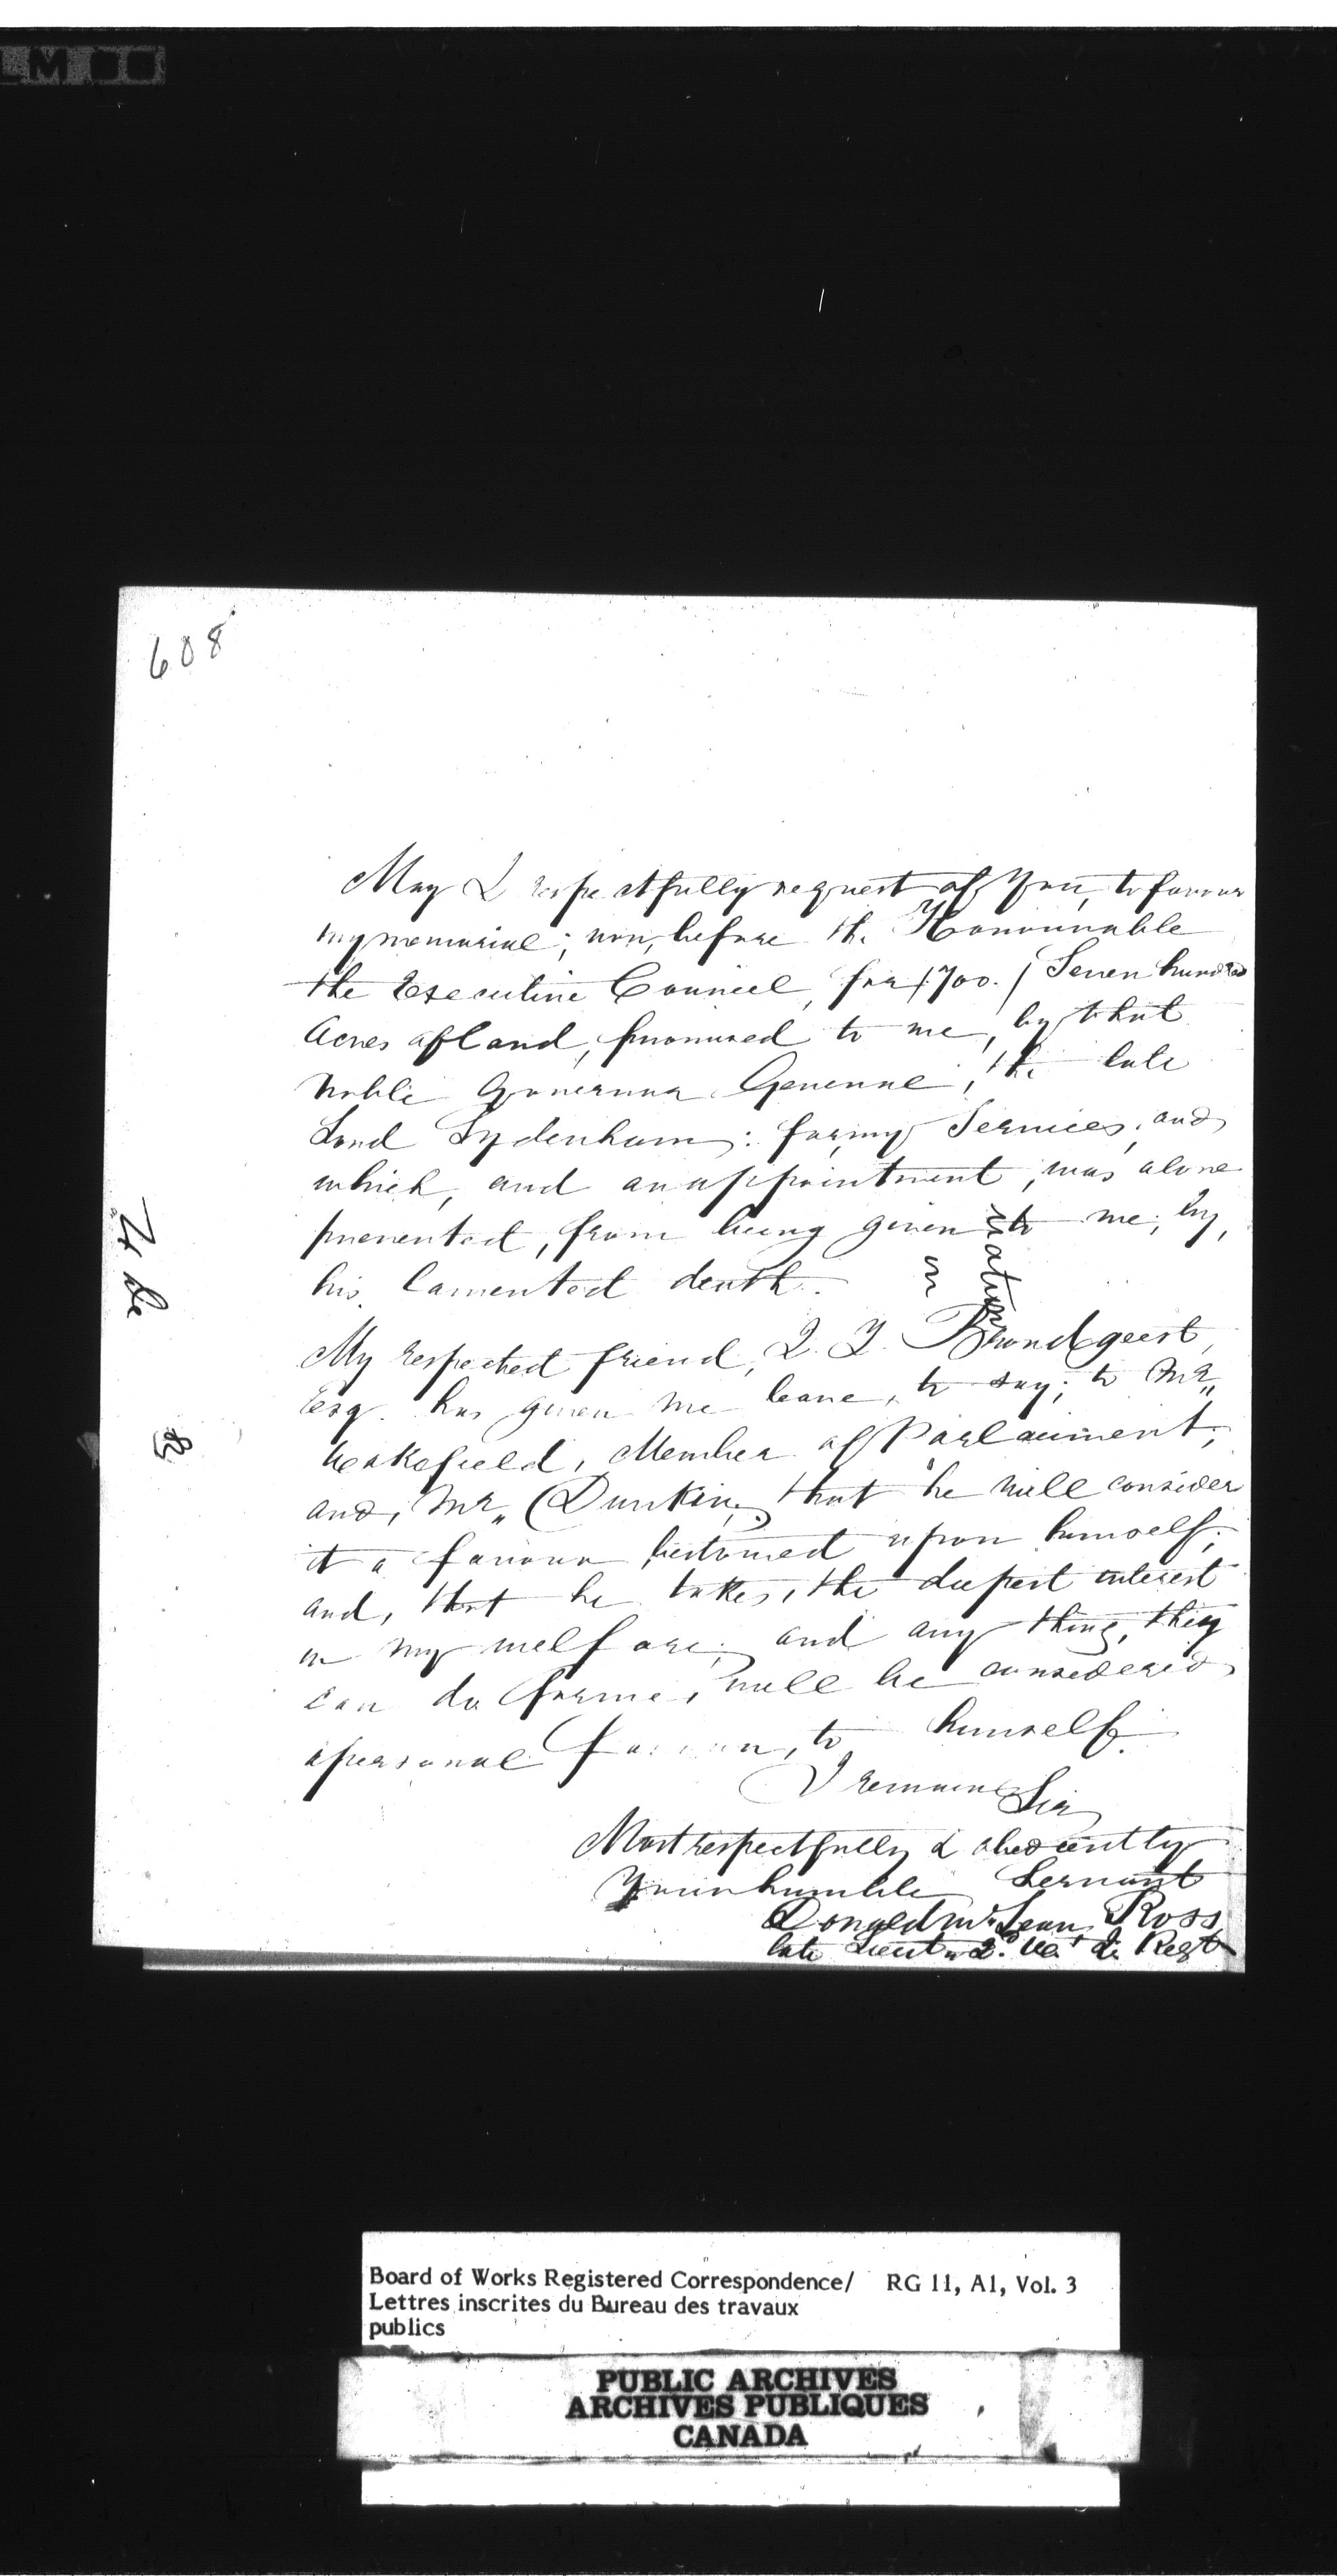 608
May I respectfully request of You, to favour
my memorial; now, before the Honourable
the Executive Council, for /700./ Seven hundred
Acres of Land, promised to me, by that
Noble Governor General, the late
Lord Sydenham: for my Services, and
which, and an appointment, was alone
prevented, from being given to me, by,
his lamented death.
My respected friend, J. T. Brondgeest,
Esq. has given me leave, to say; to Mr.
Wakefield, Member of Parlaiment;
and, Mr. Dunkin, that he will consider
it a favour bestowed upon himself;
and, that he takes, the deepest interest
in my welfare; and any thing, they
can do for me, will be considered
a personal favour, to himself.
I remain Sir
Most respectfully & obediently
Your humble Servant
Donald Mc.Lean Ross
late Lieut. 2d. Regt
Board of Works Registered Correspondence/ RG 11, A1, Vol. 3
Lettres inscrites du Bureau des travaux
publics
PUBLIC ARCHIVES
ARCHIVES PUBLIQUES
CANADA